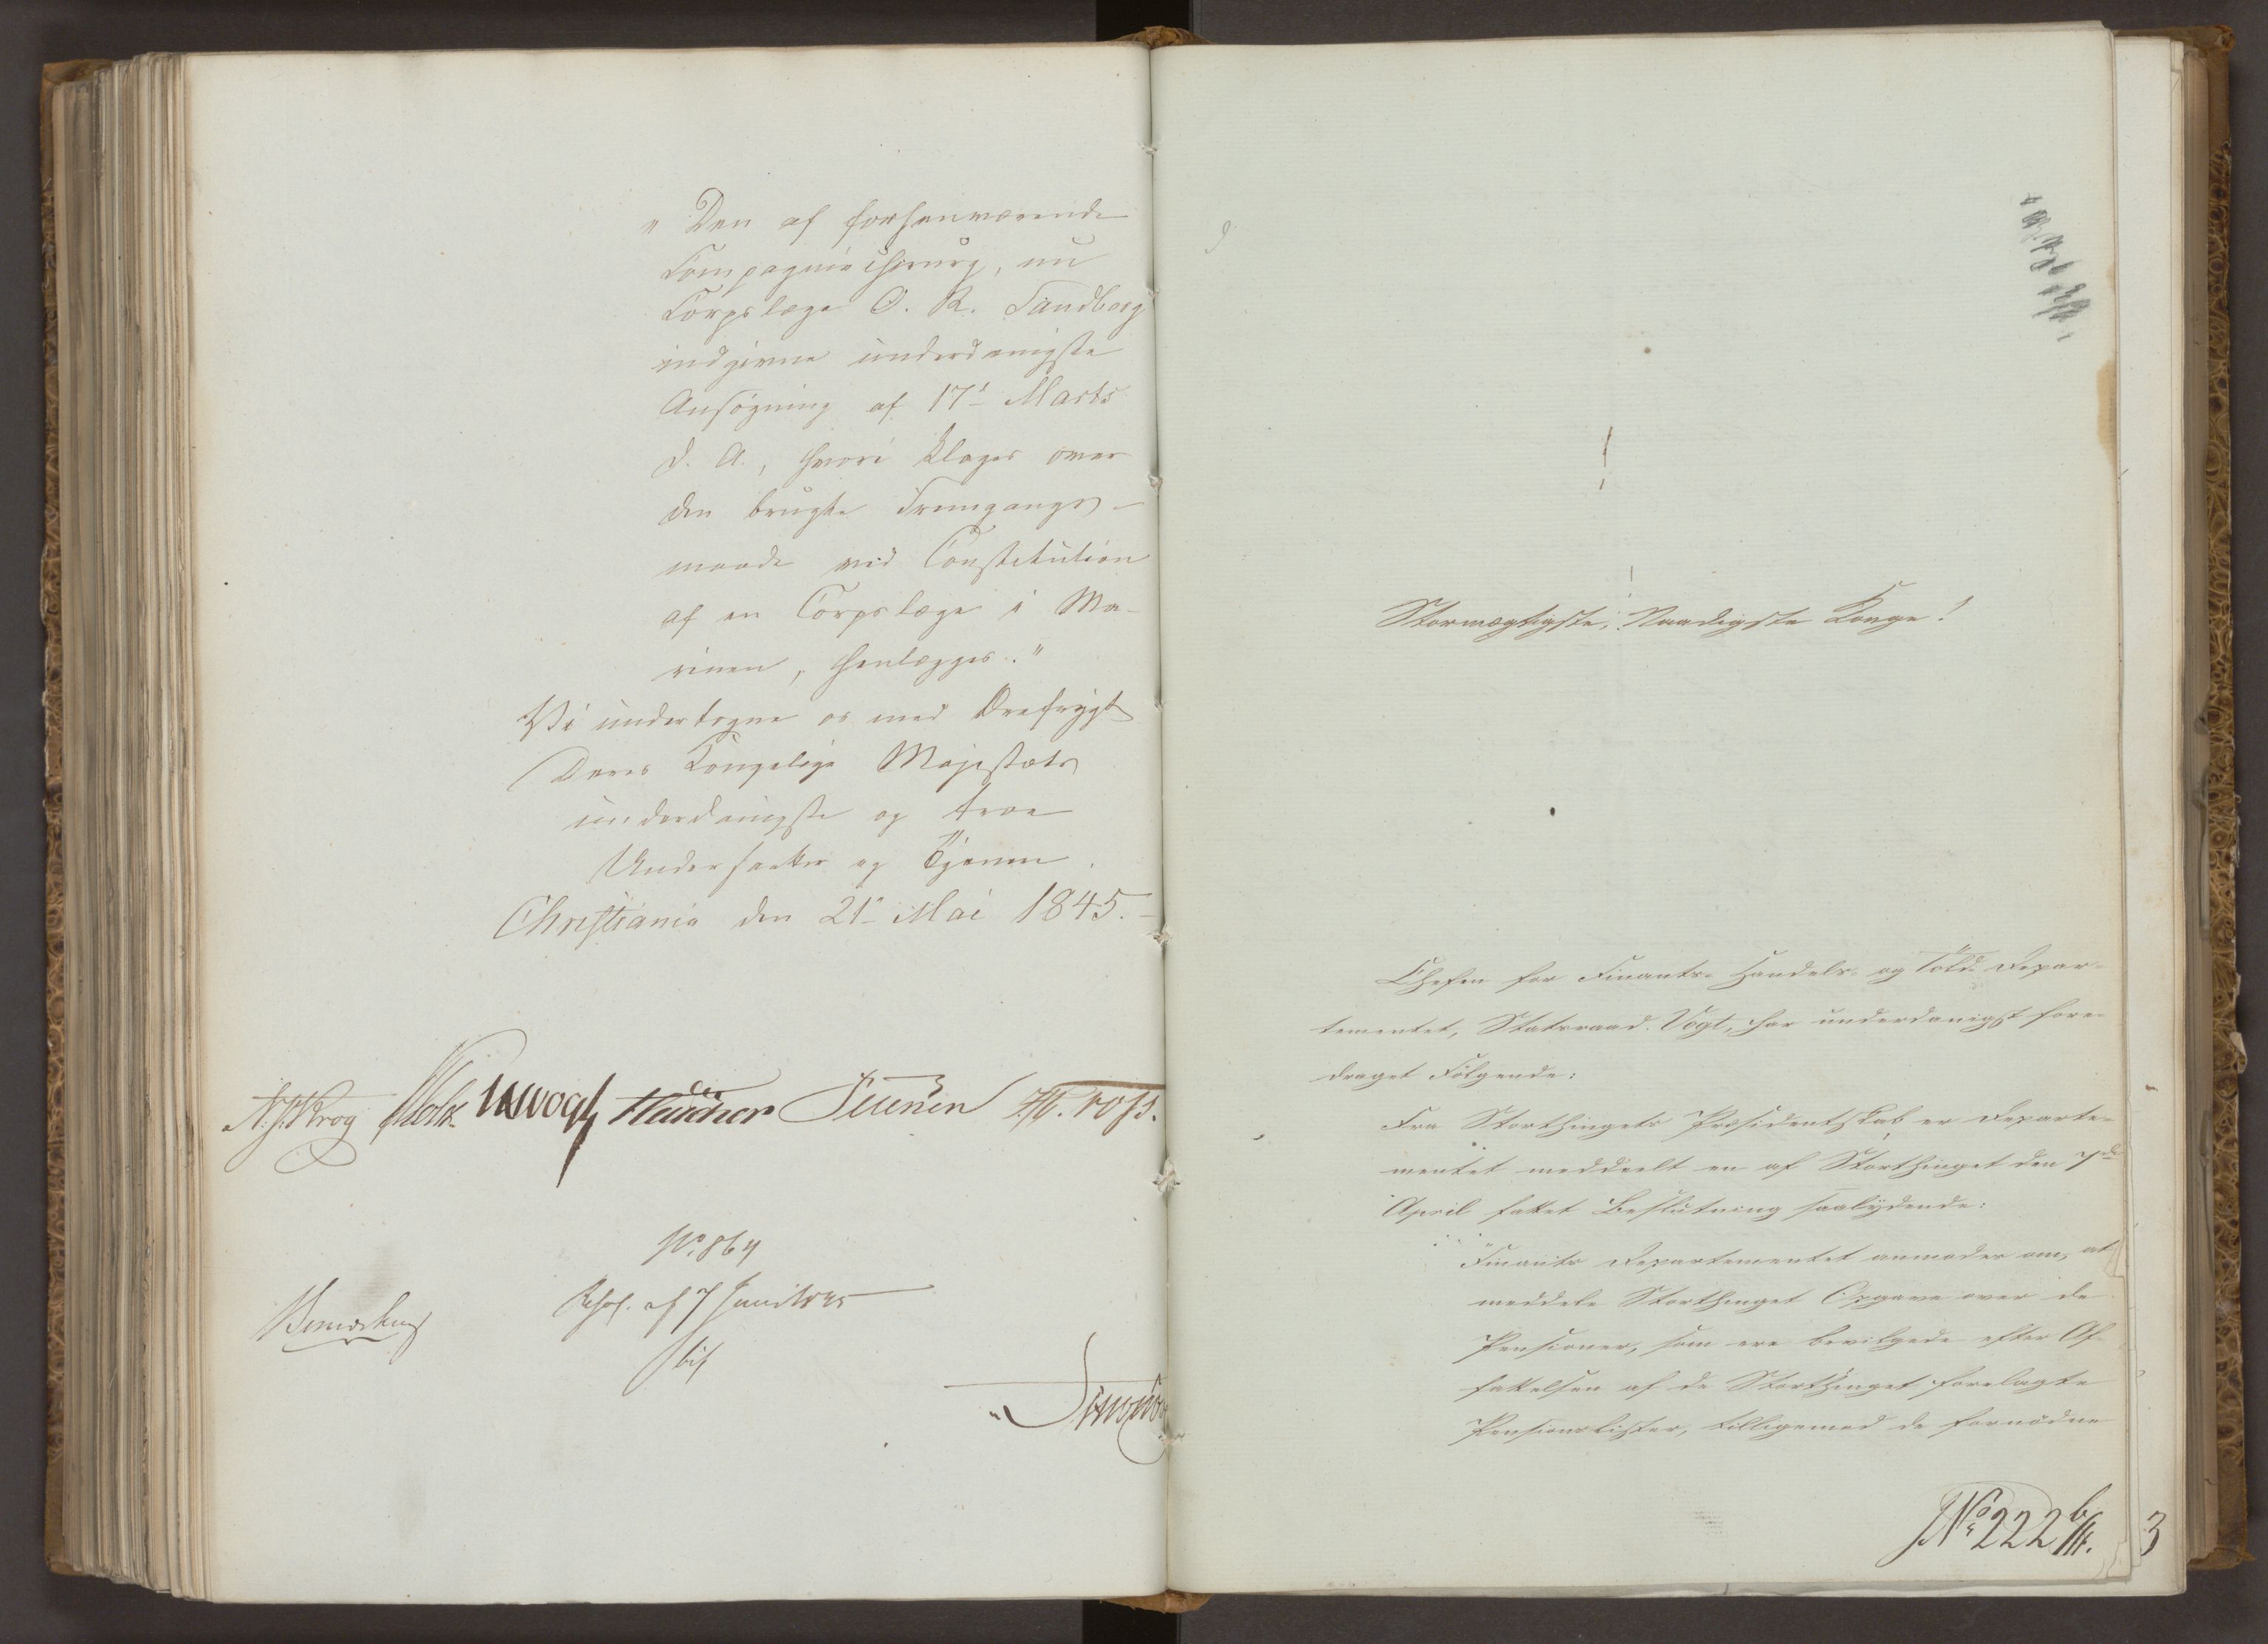 "Den af forhenværende
Compagniechirurg, nu
Corpslæge O. R. Sandberg
indgivne underdanigste
Ansøgning af 17de Marts
d. A., hvori klages over
den brugte Fremgangs-
maade ved Constitution
af en Corpslæge i Ma-
rinen, henlægges."
Vi undertegne os med Ærefrygt
Deres Kongelige Majestæts
underdanigste og troe
Undersaatter og Tjenere.
Christiania den 21de Mai 1845.
N. J. Krog Holst Vogt
No 864
Resol. af 7 Juni 1845
Stormægtigste, Naadigste Konge!
Chefen for Finants- Handels- og Told-Depar-
tementet, Statsraad Vogt, har underdanigst fore-
draget Følgende:
Fra Storthingets Præsidentskab er Departe-
mentet meddeelt en af Storthinget den 7de
April fattet Beslutning saalydende:
"Finants-Departementet anmodes om, at
meddele Storthinget Opgave over de
Pensioner, som ere bevilgede efter Af-
fattelsen af de Storthinget forelagte
Pensionslister, tilligemed de fornødne
No 222
3